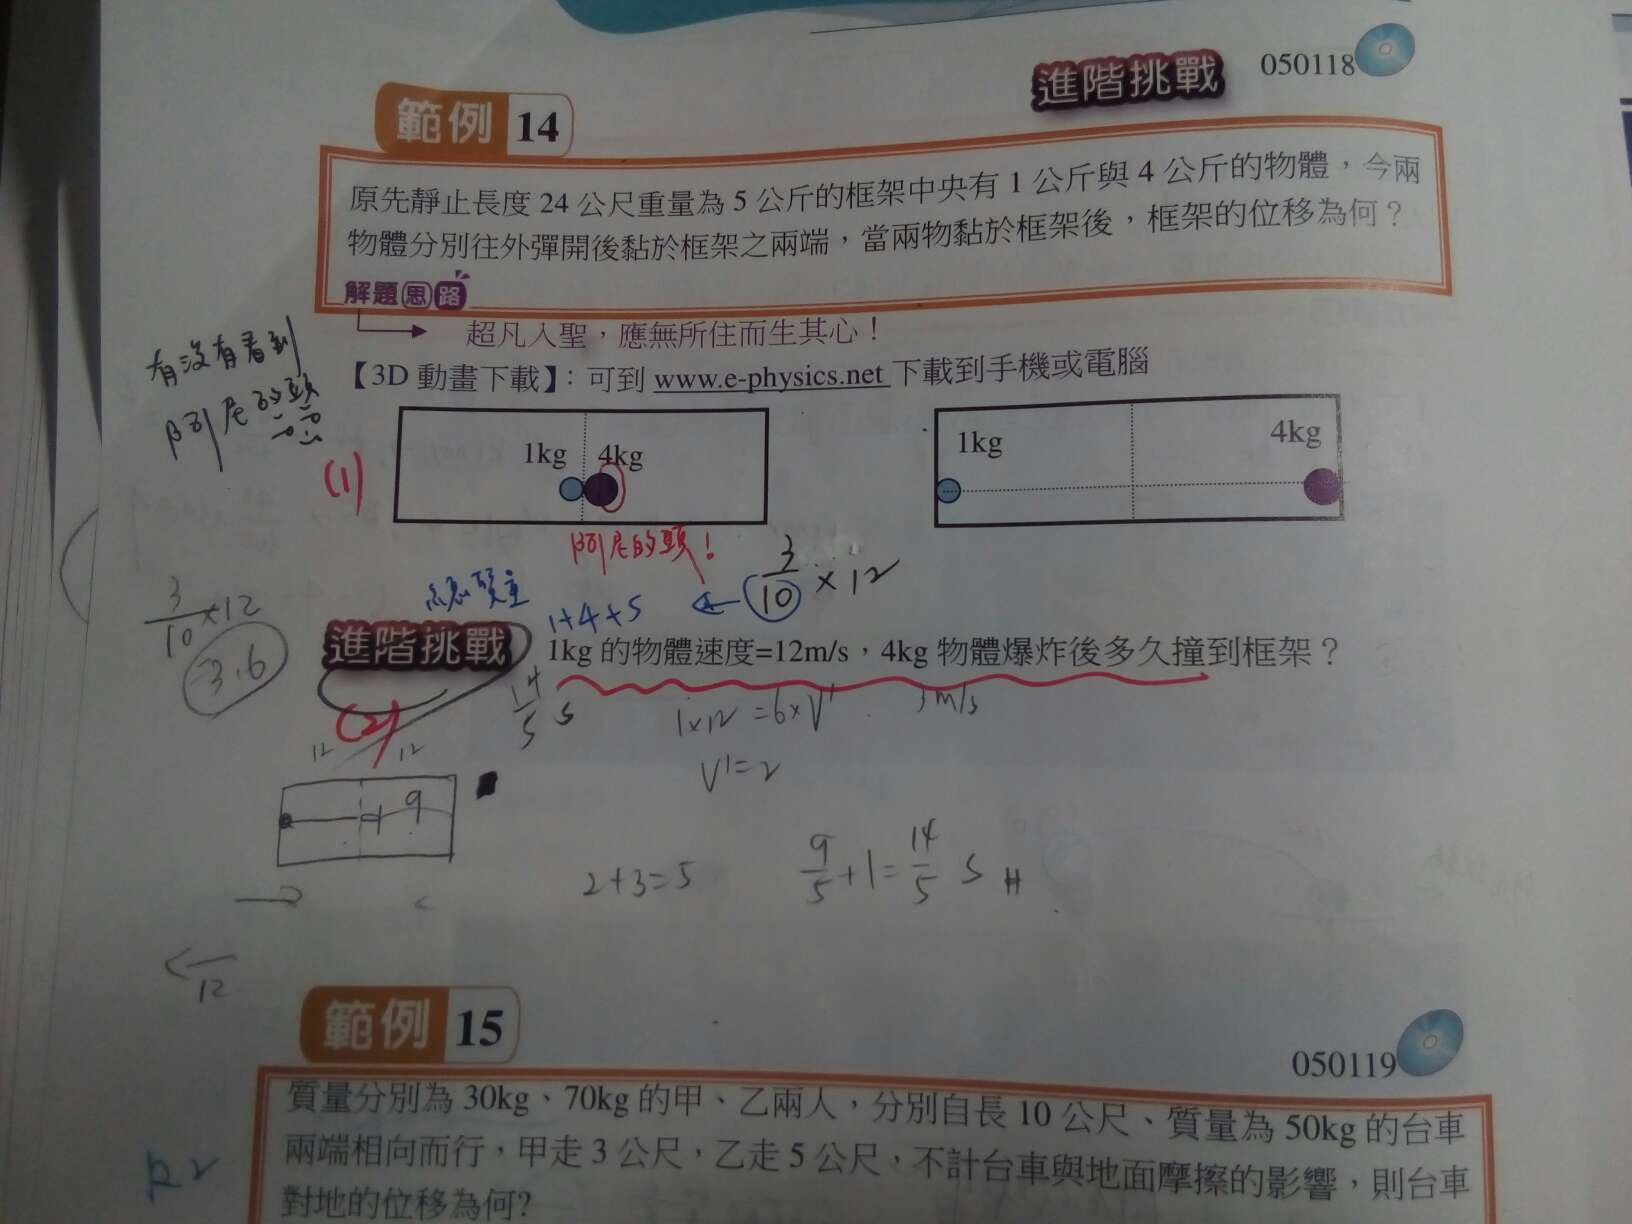 進階挑戰 050118
範例 14
原先靜止長度 24 公尺重量為 5 公斤的框架中央有 1 公斤與 4 公斤的物體，今兩
物體分別往外彈開後黏於框架之兩端，當兩物黏於框架後，框架的位移為何？
解題思路
超凡入聖，應無所住而生其心！
【3D 動畫下載】：可到 www.e-physics.net 下載到手機或電腦
有沒有看到
阿尼的頭
(1)
1kg 4kg
1kg 4kg
阿尼的頭！
3/10 × 12
總質量
1+4+5
3/10 ×12
-3.6
進階挑戰 1kg 的物體速度=12m/s，4kg 物體爆炸後多久撞到框架？
14/5 s
1×12 =6×V' 3m/s
V'=2
(2)
12 12
9
2+3=5
9/5 +1= 14/5 s #
12
範例 15
050119
質量分別為 30kg、70kg 的甲、乙兩人，分別自長 10 公尺、質量為 50kg 的台車
兩端相向而行，甲走 3 公尺，乙走 5 公尺，不計台車與地面摩擦的影響，則台車
對地的位移為何?